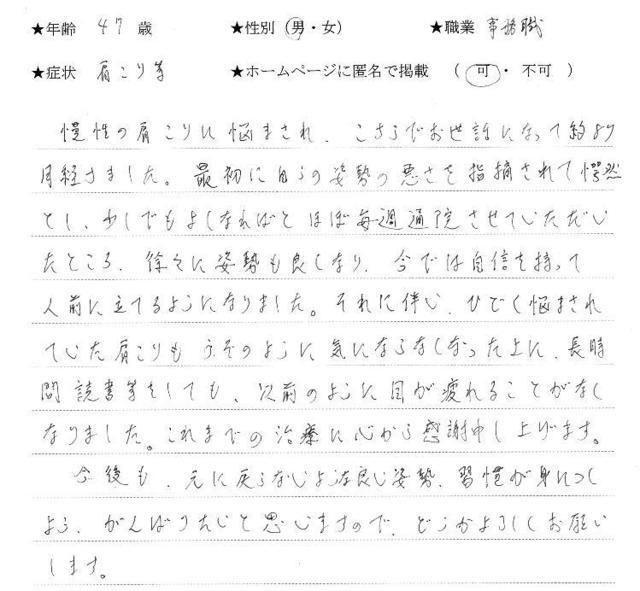 ★年齢 47 歳 ★性別 (男・女) ★職業 事務職
★症状 肩こり等 ★ホームページに匿名で掲載 (可・不可)
慢性の肩こりに悩まされ、こちらでお世話になって約8ヶ
月経ちました。最初に自らの姿勢の悪さを指摘されて愕然
とし、少しでもよくなればとほぼ毎週通院させていただい
たところ、徐々に姿勢も良くなり、今では自信を持って
人前に立てるようになりました。それに伴い、ひどく悩まされ
ていた肩こりもうそのように気にならなくなった上に、長時
間読書等をしても、以前のように目が疲れることがなく
なりました。これまでの治療に心から感謝申し上げます。
今後も、元に戻らないような良い姿勢、習慣が身につく
よう、がんばりたいと思いますので、どうかよろしくお願い
します。